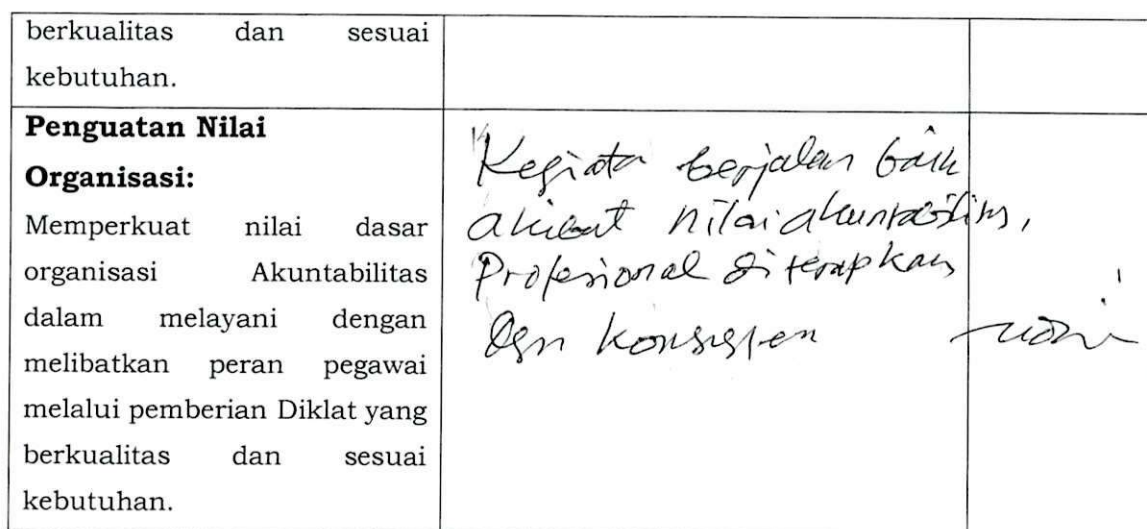 berkualitas dan sesuai
kebutuhan.
Penguatan Nilai
Organisasi:
Memperkuat nilai dasar
organisasi Akuntabilitas
dalam melayani dengan
melibatkan peran pegawai
melalui pemberian Diklat yang
berkualitas dan sesuai
kebutuhan.
Kegiata berjalan baik
akibat nilai akuntabilitas,
Profesional diterapkan
dgn konsisten